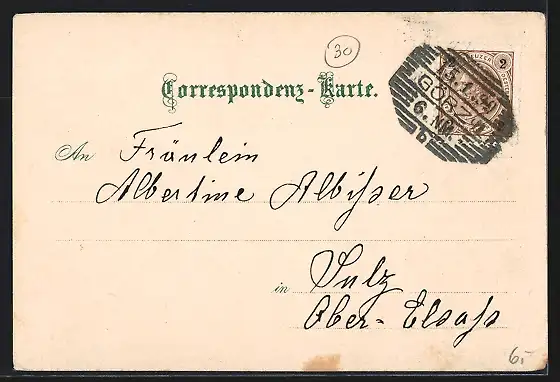 30
Correspondenz-Karte.
2
15.1.99
6. N.
b
An Fräulein
Albertine Albißer
in Sulz
Ober-Elsaß
6.-